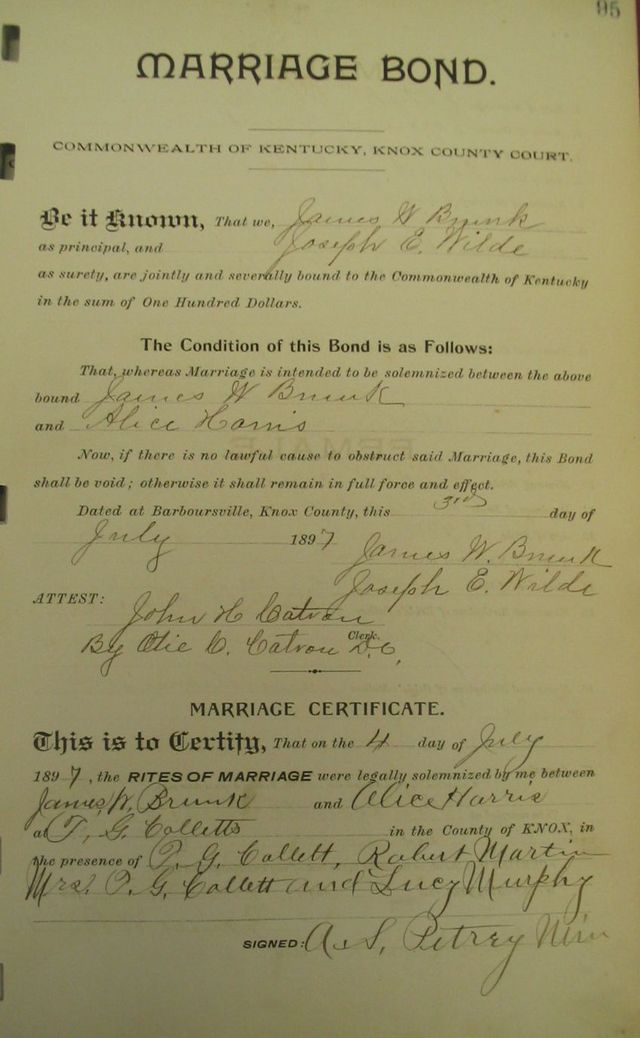 95
MARRIAGE BOND.
COMMONWEALTH OF KENTUCKY, KNOX COUNTY COURT.
Be it Known, That we, James W Brunk
as principal, and Joseph E. Wilde
as surety, are jointly and severally bound to the Commonwealth of Kentucky
in the sum of One Hundred Dollars.
The Condition of this Bond is as Follows:
That, whereas Marriage is intended to be solemnized between the above
bound James W Brunk
and Alice Harris
Now, if there is no lawful cause to obstruct said Marriage, this Bond
shall be void; otherwise it shall remain in full force and effect.
Dated at Barboursville, Knox County, this 3rd day of
July 1897
James W. Brunk
Joseph E. Wilde
ATTEST:
John H Catron
Clerk.
By Otie C. Catron D.C.
MARRIAGE CERTIFICATE.
This is to Certify, That on the 4 day of July
1897, the RITES OF MARRIAGE were legally solemnized by me between
James W. Brunk and Alice Harris
at T. G. Colletts in the County of KNOX, in
the presence of T. G. Collett, Robert Martin
Mrs. T. G. Collett and Lucy Murphy
SIGNED: A. S. Petrey Min